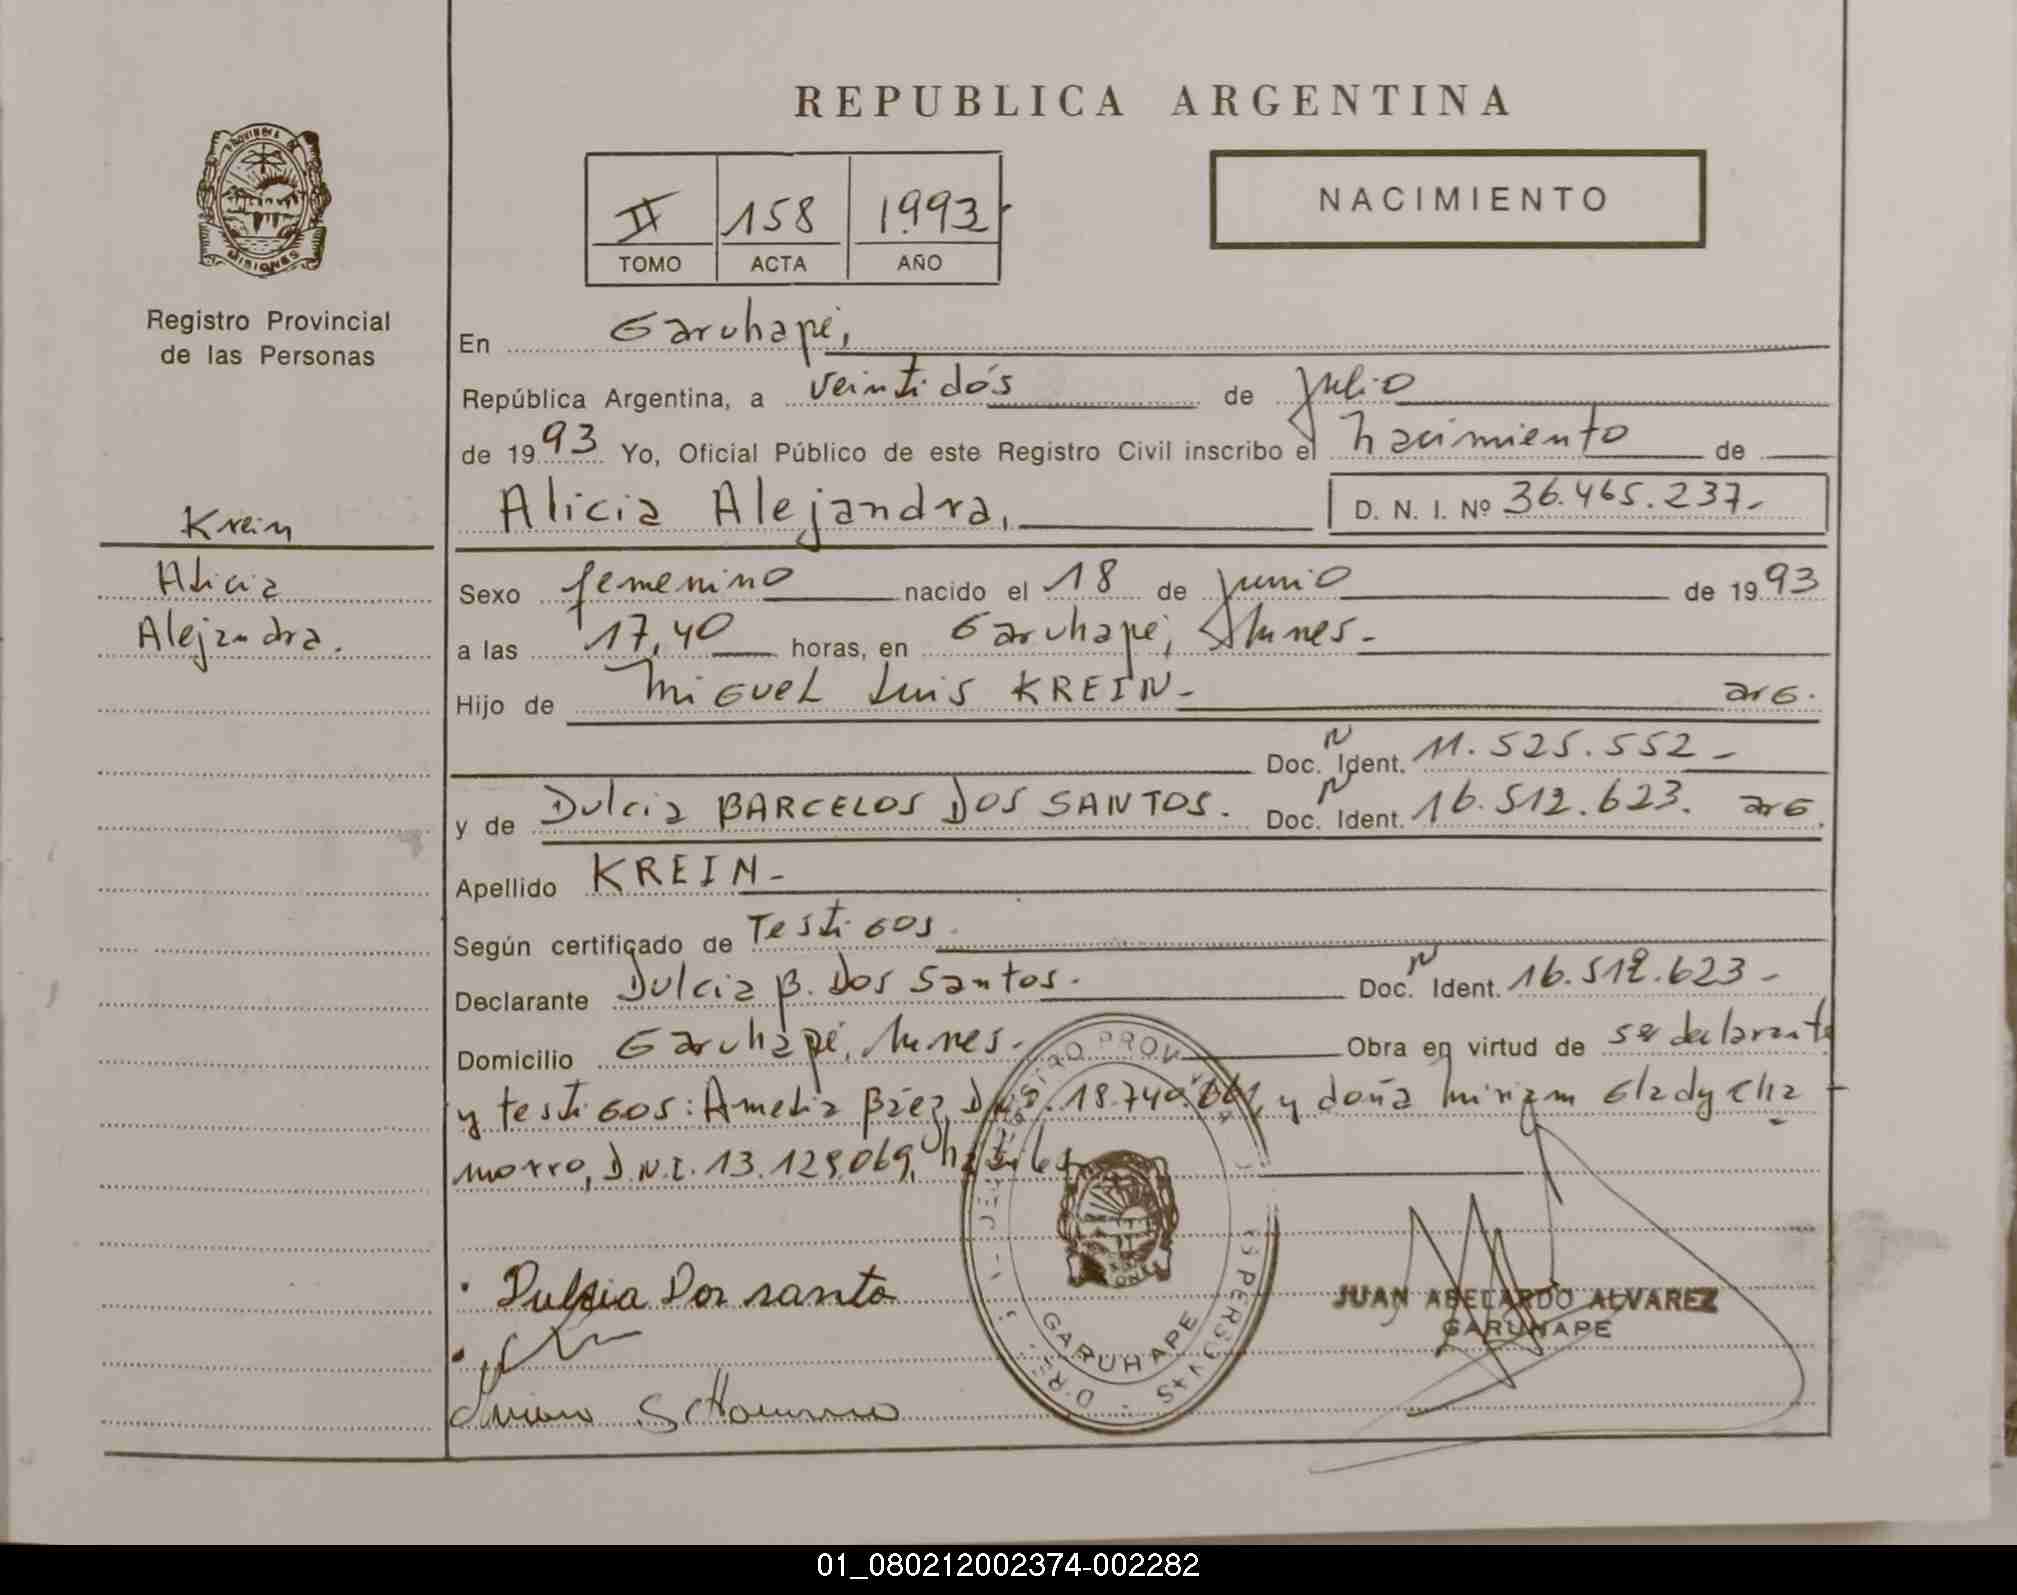 REPUBLICA ARGENTINA
PROVINCIA DE MISIONES
II 158 1993
TOMO ACTA AÑO
NACIMIENTO
Registro Provincial
de las Personas
Krein
Alicia
Alejandra.
En Garuhapé,
República Argentina, a veintidós de julio
de 1993 Yo, Oficial Público de este Registro Civil inscribo el nacimiento de
Alicia Alejandra, D. N. I. Nº 36.465.237-
Sexo femenino nacido el 18 de junio de 1993
a las 17,40 horas, en Garuhapé, Mnes-
Hijo de Miguel Luis KREIN- arg.
Doc. N Ident. 11.525.552-
y de Dulcia BARCELOS DOS SANTOS. Doc. N Ident. 16.512.623. arg.
Apellido KREIN-
Según certificado de Testigos
Declarante Dulcia B. Dos Santos. Doc. N Ident. 16.512.623-
Domicilio Garuhapé, Mnes. Obra en virtud de ser declarante
y testigos: Amelia Báez, D.N.I. 18.740. y doña Miriam Gladys
D.N.I. 13.129.069, hábiles
Dulcia Dos santo
GARUHAPE
JUAN ABELARDO ALVAREZ
GARUHAPE
01_080212002374-002282